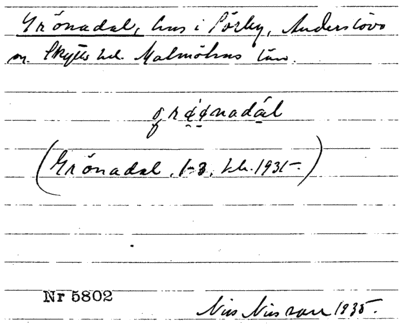 Grönadal, hus i Sörby, Anderslövs
sn. Skytts hd. Malmöhus län.
grö̜ö̜nadál
(Grönadal, 1-3, hb. 1931-)
Nr 5802
Nils Nilsson 1935.